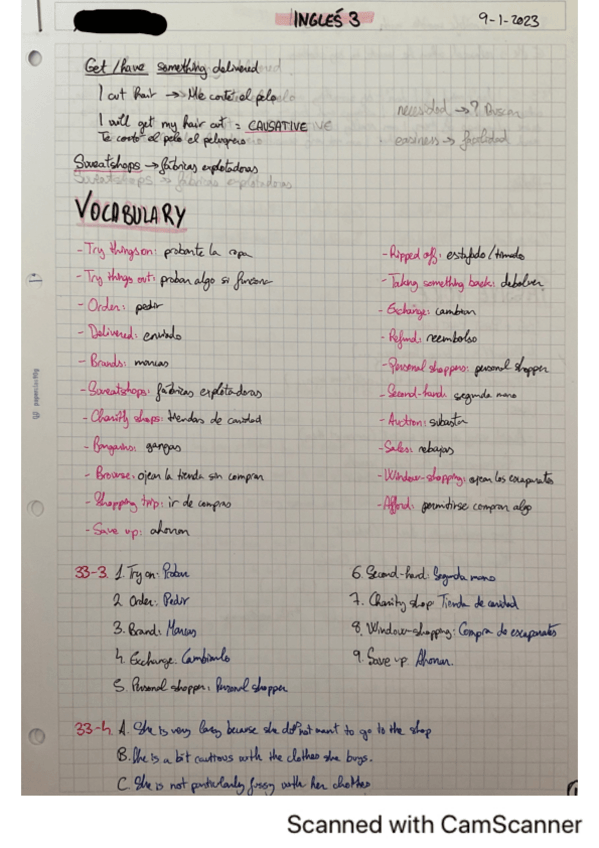 INGLEŚ 3
9-1-2023
Get / have something delivered
I cut hair → Me corté el pelo
I will get my hair cut = CAUSATIVE
Te corto el pelo el peluquero
necesidad → ?
easiness → facilidad
Sweatshops → fábricas explotadoras
VOCABULARY
- Try things on: probarte la ropa
- Try things out: probar algo si funciona
- Order: pedir
- Delivered: enviado
- Brands: marcas
- Sweatshops: fábricas explotadoras
- Charity shops: tiendas de caridad
- Bargains: gangas
- Browse: ojear la tienda sin comprar
- Shopping trip: ir de compras
- Save up: ahorrar
- Ripped off: estafado / timado
- Taking something back: debolver
- Exchange: cambiar
- Refund: reembolso
- Personal shoppers: personal shopper
- Second-hand: segunda mano
- Auction: subasta
- Sales: rebajas
- Window-shopping: ojear los escaparates
- Afford: permitirse comprar algo
33-3. 1. Try on: Probar
2. Order: Pedir
3. Brand: Marcas
4. Exchange: Cambiarlo
5. Personal shopper: Personal shopper
6. Second-hand: Segunda mano
7. Charity shop: Tienda de caridad
8. Window-shopping: Compra de escaparates
9. Save up: Ahorrar.
33-4. A. She is very lazy because she did not want to go to the shop
B. She is a bit cautious with the clothes she buys.
C. She is not particularly fussy with her clothes
Scanned with CamScanner